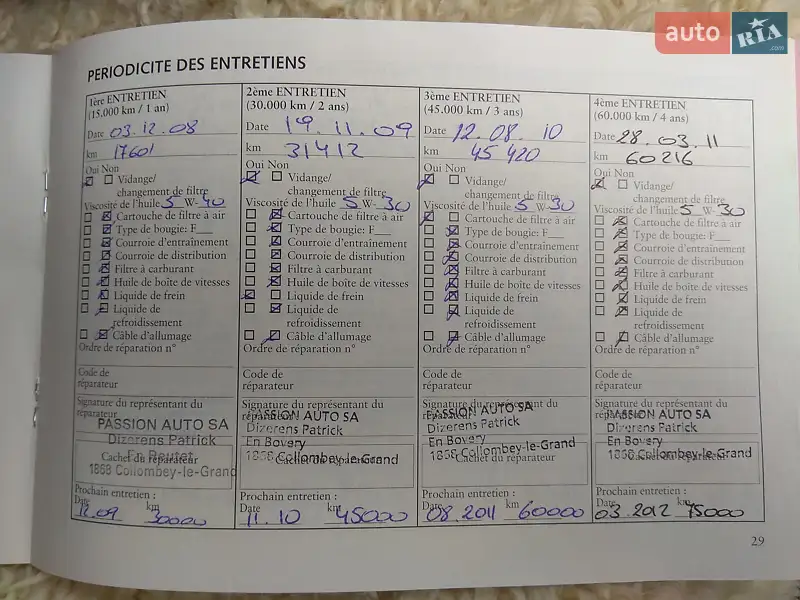 auto RIA .com
PERIODICITE DES ENTRETIENS
1ère ENTRETIEN
(15.000 km / 1 an)
Date 03.12.08
km 17601
Oui Non
Vidange/
changement de filtre
Viscosité de l'huile 5 W-40
Cartouche de filtre à air
Type de bougie: F__
Courroie d'entraînement
Courroie de distribution
Filtre à carburant
Huile de boîte de vitesses
Liquide de frein
Liquide de
refroidissement
Câble d'allumage
Ordre de réparation n°
Code de
réparateur
Signature du représentant du
réparateur
PASSION AUTO SA
Dizerens Patrick
Cachet du réparateur
1868 Collombey-le-Grand
Prochain entretien :
Date 12.09 km 30000
2ème ENTRETIEN
(30.000 km / 2 ans)
Date 19.11.09
km 31412
Oui Non
Vidange/
changement de filtre
Viscosité de l'huile 5 W-30
Cartouche de filtre à air
Type de bougie: F__
Courroie d'entraînement
Courroie de distribution
Filtre à carburant
Huile de boîte de vitesses
Liquide de frein
Liquide de
refroidissement
Câble d'allumage
Ordre de réparation n°
Code de
réparateur
Signature du représentant du
réparateur
PASSION AUTO SA
Dizerens Patrick
En Bovery
1868 Collombey-le-Grand
Cachet du réparateur
Prochain entretien :
Date 11.10 km 45000
3ème ENTRETIEN
(45.000 km / 3 ans)
Date 12.08.10
km 45420
Oui Non
Vidange/
changement de filtre
Viscosité de l'huile 5 W-30
Cartouche de filtre à air
Type de bougie: F__
Courroie d'entraînement
Courroie de distribution
Filtre à carburant
Huile de boîte de vitesses
Liquide de frein
Liquide de
refroidissement
Câble d'allumage
Ordre de réparation n°
Code de
réparateur
Signature du représentant du
réparateur
PASSION AUTO SA
Dizerens Patrick
En Bovery
1868 Collombey-le-Grand
Cachet du réparateur
Prochain entretien :
Date 08.2011 km 60000
4ème ENTRETIEN
(60.000 km / 4 ans)
Date 28.03.11
km 60216
Oui Non
Vidange/
changement de filtre
Viscosité de l'huile 5 W-30
Cartouche de filtre à air
Type de bougie: F__
Courroie d'entraînement
Courroie de distribution
Filtre à carburant
Huile de boîte de vitesses
Liquide de frein
Liquide de
refroidissement
Câble d'allumage
Ordre de réparation n°
Code de
réparateur
Signature du représentant du
réparateur
PASSION AUTO SA
Dizerens Patrick
En Bovery
1868 Collombey-le-Grand
Cachet du réparateur
Prochain entretien :
Date 03.2012 km 75000
29